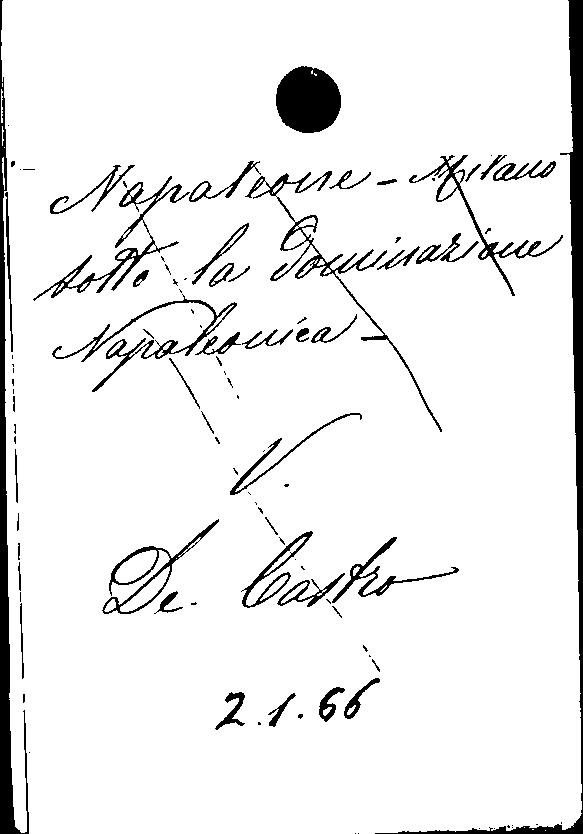 Napoleone - Milano
sotto la dominazione
Napoleonica -
V.
De Castro
2.1.66